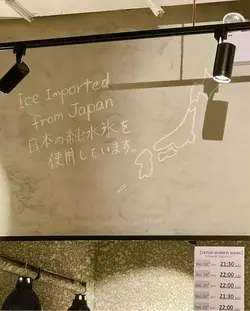 Ice Imported
from Japan
日本の純水氷を
使用しています。
21:30
22:00
22:00
21:30
22:00